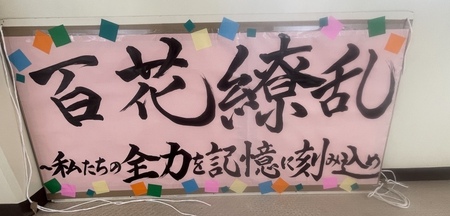 百花繚乱
~私たちの全力を記憶に刻み込め